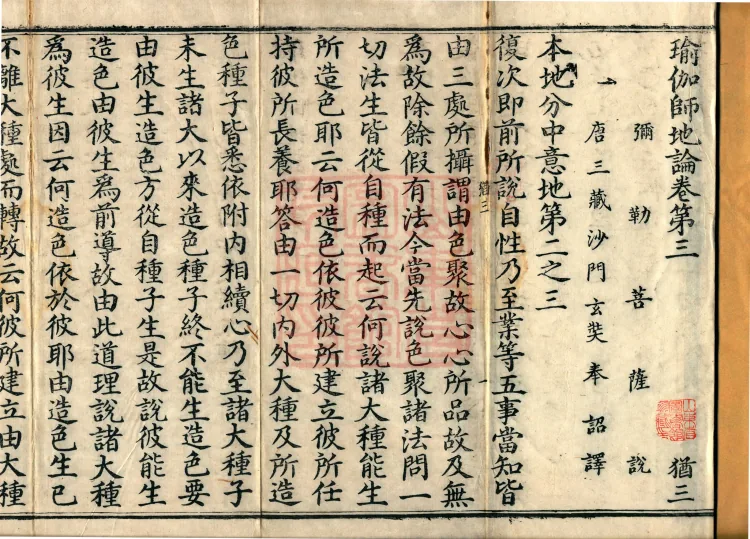 瑜伽師地論卷第三 猶三
彌勒菩薩說
唐三藏沙門玄奘奉詔譯
本地分中意地第二之三
復次即前所說自性乃至業等五事當知皆
猶三
由三處所攝謂由色聚故心心所品故及無
為故除餘假有法今當先說色聚諸法問一
切法生皆從自種而起云何說諸大種能生
所造色耶云何造色依彼彼所建立彼所任
持彼所長養耶答由一切內外大種及所造
色種子皆悉依附內相續心乃至諸大種子
未生諸大以來造色種子終不能生造色要
由彼生造色方從自種子生是故說彼能生
造色由彼生為前導故由此道理說諸大種
為彼生因云何造色依於彼耶由造色生已
不離大種處而轉故云何彼所建立由大種